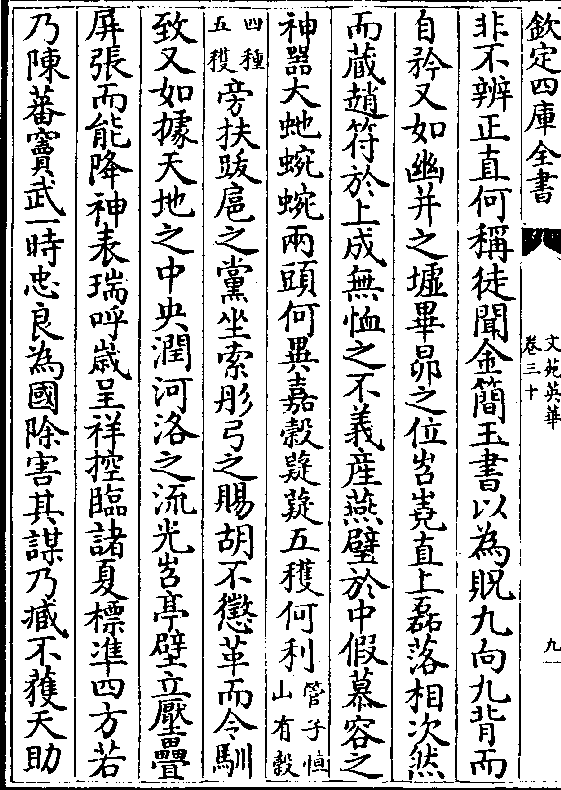 欽定四庫全書
文苑英華
卷三十
九
非不辨正直何稱徒聞金簡玉書以為貺九向九背而
自矜又如幽并之墟畢昴之位岧嶤直上磊落相次然
而蔵趙符於上成無恤之不義産燕壁於中假慕容之
神器大虵蜿蜿兩頭何異嘉穀薿薿五穫何利管子恒山有穀
四種五穫旁扶跋扈之黨坐索彤弓之賜胡不懲革而令馴
致又如據天地之中央潤河洛之流光岧亭壁立壓疊
屏張而能降神表瑞呼歳呈祥控臨諸夏標準四方若
乃陳蕃竇武一時忠良為國除害其謀乃臧不獲天助